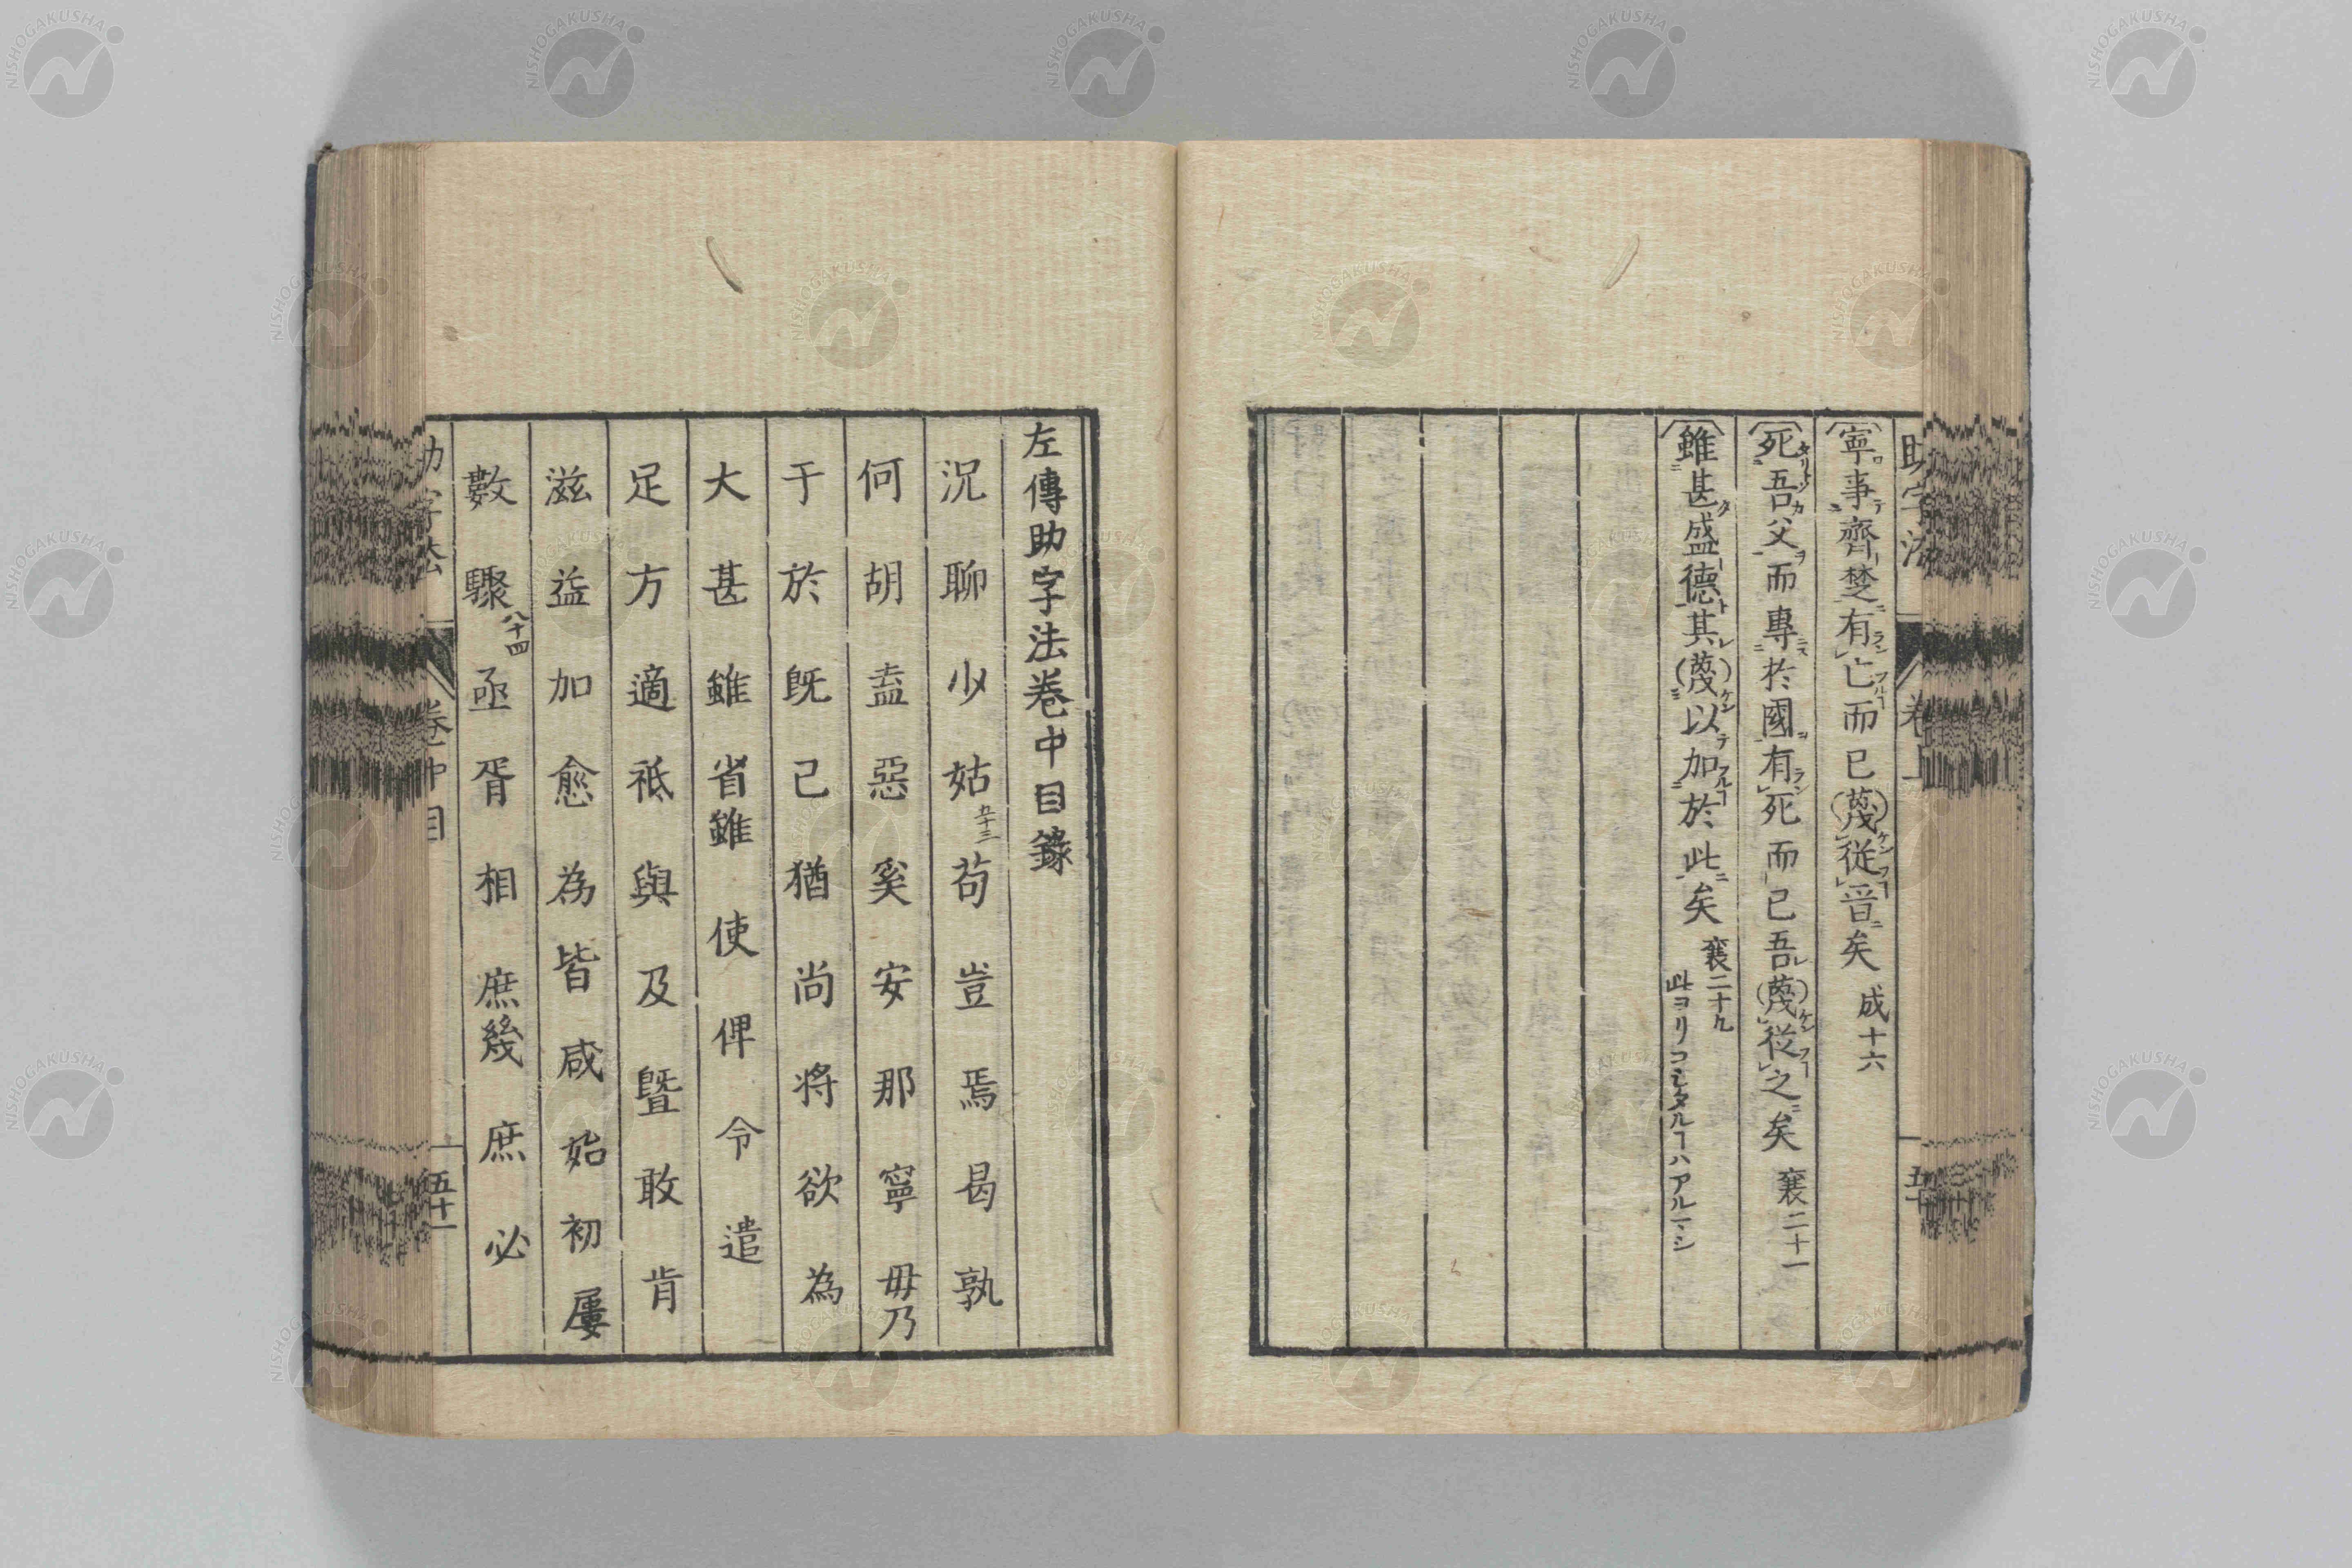 寧事齊楚有亡而已蔑從晉矣 成十六
死吾父而專於國有死而已吾蔑從之矣 襄二十一
雖甚盛德其蔑以加於此矣 襄二十九
此ヨリコシタルヿハアルマシ
左傳助字法卷中目錄
況 聊 少 姑 五十三 苟 豈 焉 曷 孰
何 胡 盍 惡 奚 安 那 寧 毋乃
于 於 既 已 猶 尚 將 欲 為
大 甚 雖 省雖 使 俾 令 遣
足 方 適 祗 與 及 暨 敢 肯
滋 益 加 愈 為 皆 咸 始 初 屢
數 驟 八十四 亟 胥 相 庶幾 庶 必
助字法 卷中目 五十一
NISHOGAKUSHA